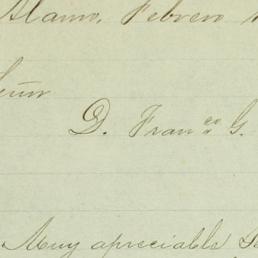 Alamo, Febrero
Señor
D. Franco G.
Muy apreciable